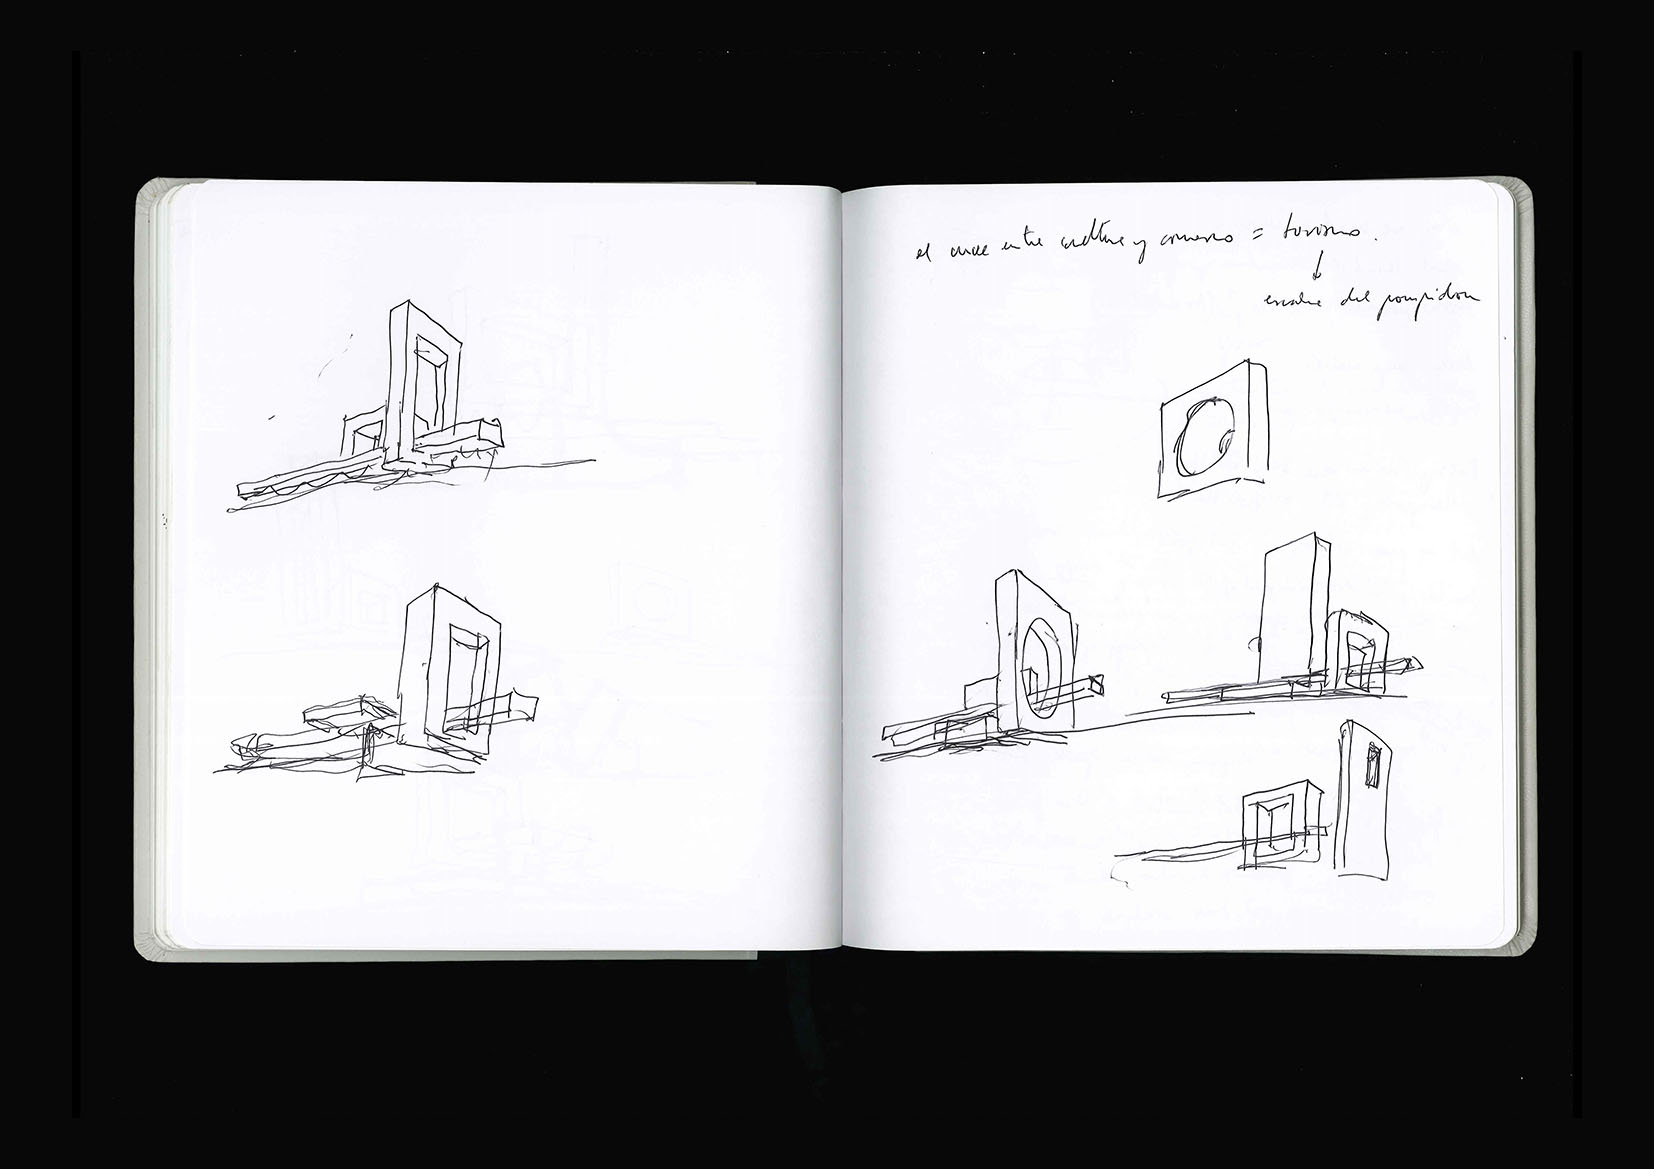 el cruce entre cultura y comercio = turismo.
↓
del pompidou